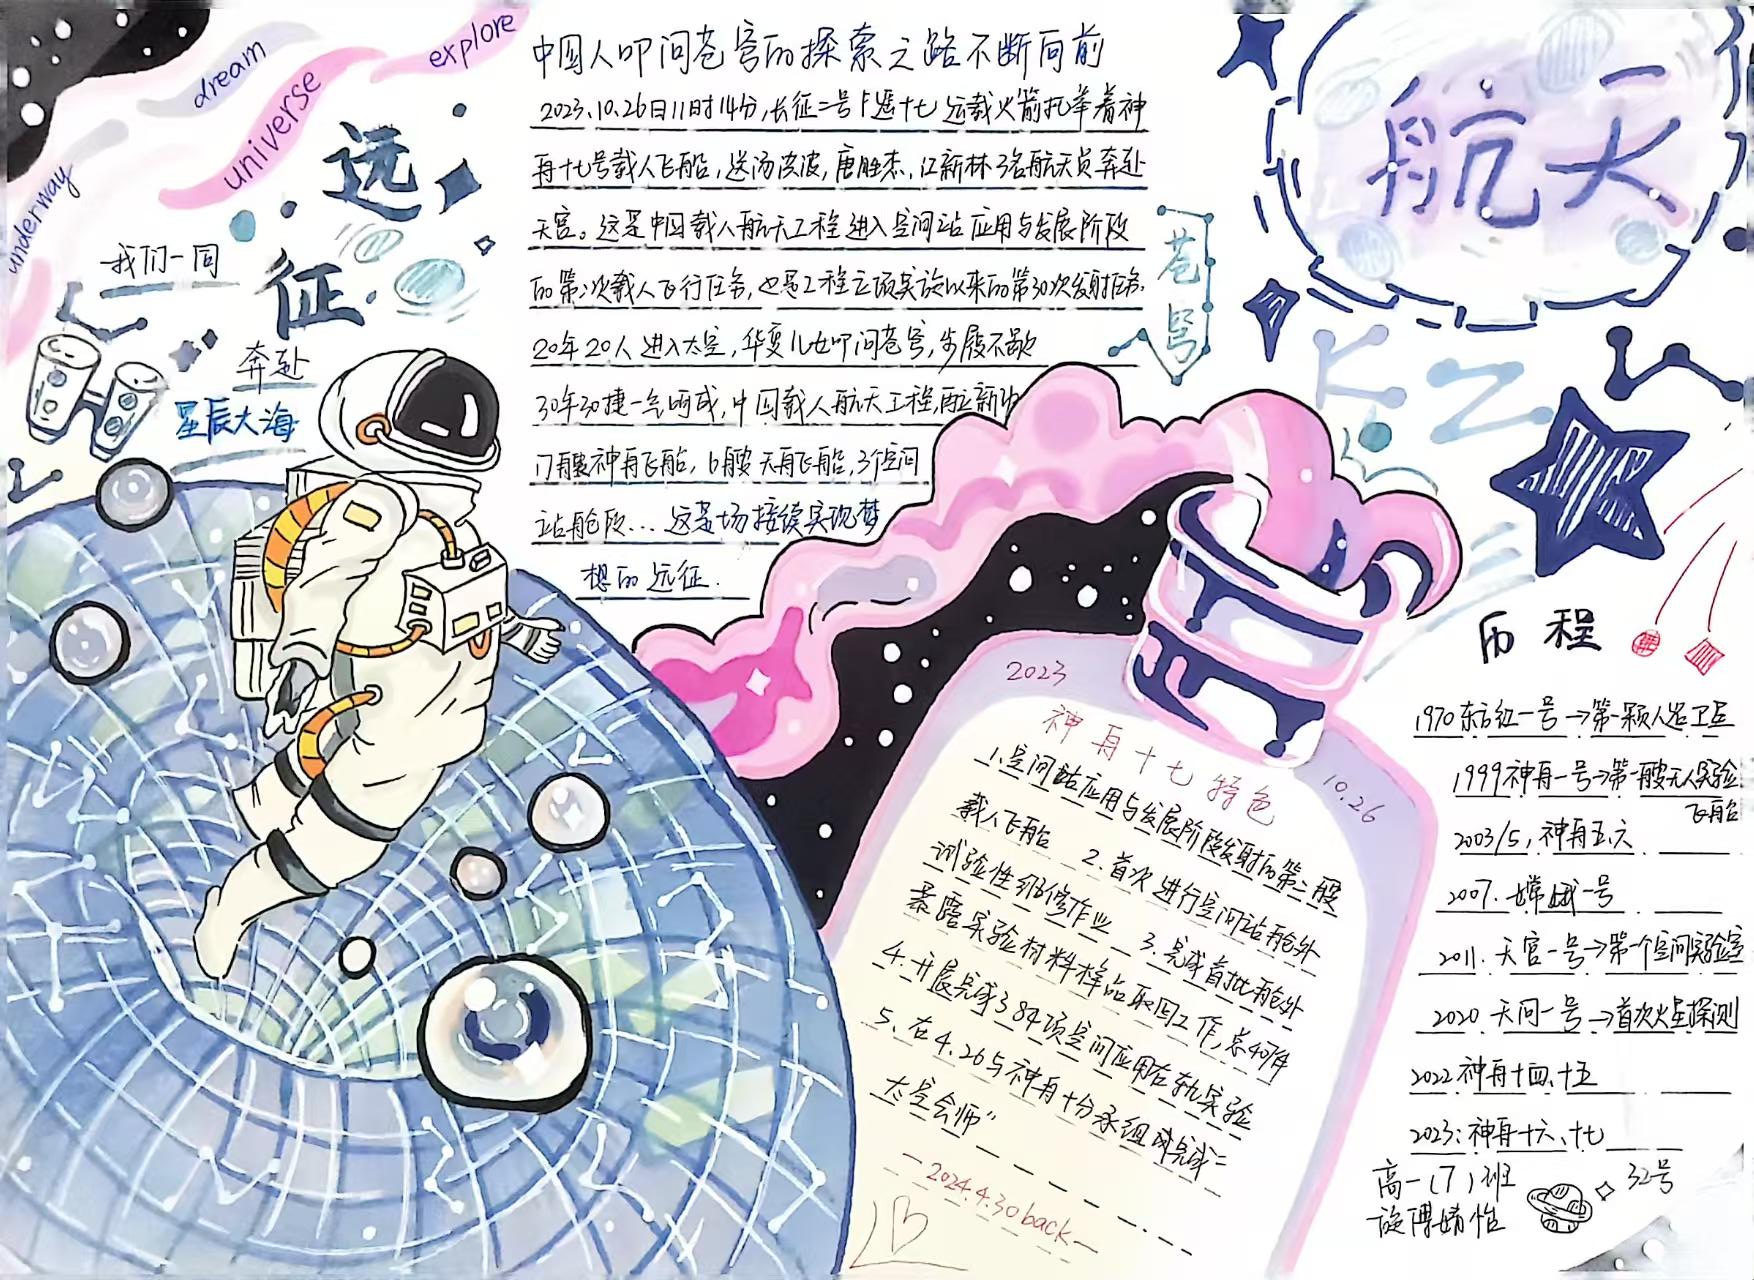 dream
universe
explore
underway
远
征
我们一同
奔赴
星辰大海
中国人叩问苍穹的探索之路不断向前
2023.10.26日11时14分,长征二号F遥十七运载火箭托举着神
舟十七号载人飞船,送汤洪波,唐胜杰,江新林3名航天员奔赴
天宫。这是中国载人航天工程进入空间站应用与发展阶段
的第二次载人飞行任务,也是工程立项实施以来的第30次发射任务.
20年20人进入太空,华夏儿女叩问苍穹,步履不歇
30年30捷一气呵成,中国载人航天工程,再立新功
17艘神舟飞船,6艘天舟飞船,3个空间
站舱段...这是场接续实现梦
想的远征.
苍
穹
航天
KZ
2023
10.26
神舟十七特色
1.空间站应用与发展阶段发射的第二艘
载人飞船 2.首次进行空间站舱外
试验性维修作业 3.完成首批舱外
暴露实验材料样品取回工作,总40件
4.开展完成384项空间应用在轨实验
5、在4.26与神舟十八乘组完成“
太空会师”
—2024.4.30 back—
历程
1970东方红一号→第一颗人造卫星
1999神舟一号→第一艘无人实验
飞船
2003/5,神舟五.六
2007.嫦娥一号
2011.天宫一号→第一个空间实验室
2020 天问一号→首次火星探测
2022神舟十四、十五
2023:神舟十六、十七
高一(7)班
32号